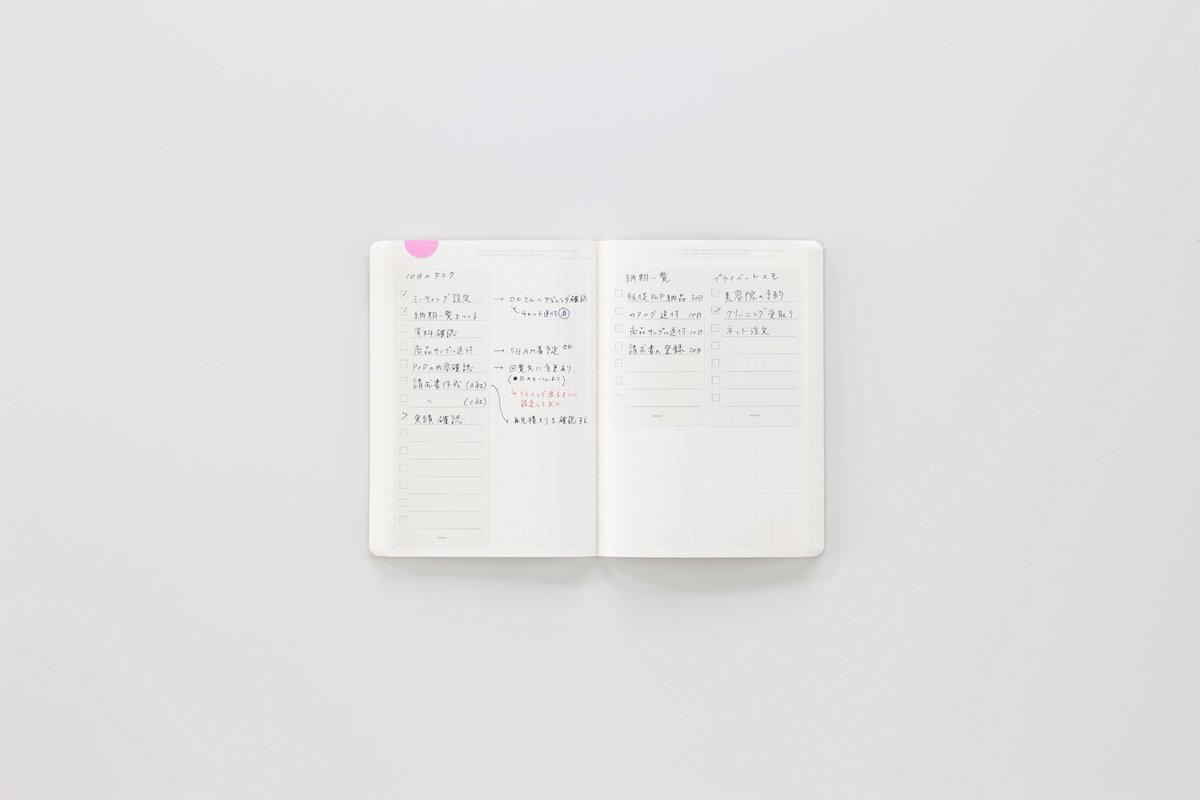 10日のタスク
ミーティング設定
納期一覧をつくる
資料確認
商品サンプル送付
POPの内容確認
請求書作成 (A社)
〃 (C社)
実績確認
→ ○○さんへアジェンダ確認
チャット送付 済
→ 5日AM着予定 OK
→ 回覧先に変更あり
(●日のメールより)
リマインド送るように
設定しておく
再見積もりを確認する
納期一覧
販促POP納品 30日
カタログ送付 10日
商品サンプル送付 10日
請求書の登録 20日
プライベートメモ
美容院の予約
クリーニング受取り
ネット注文